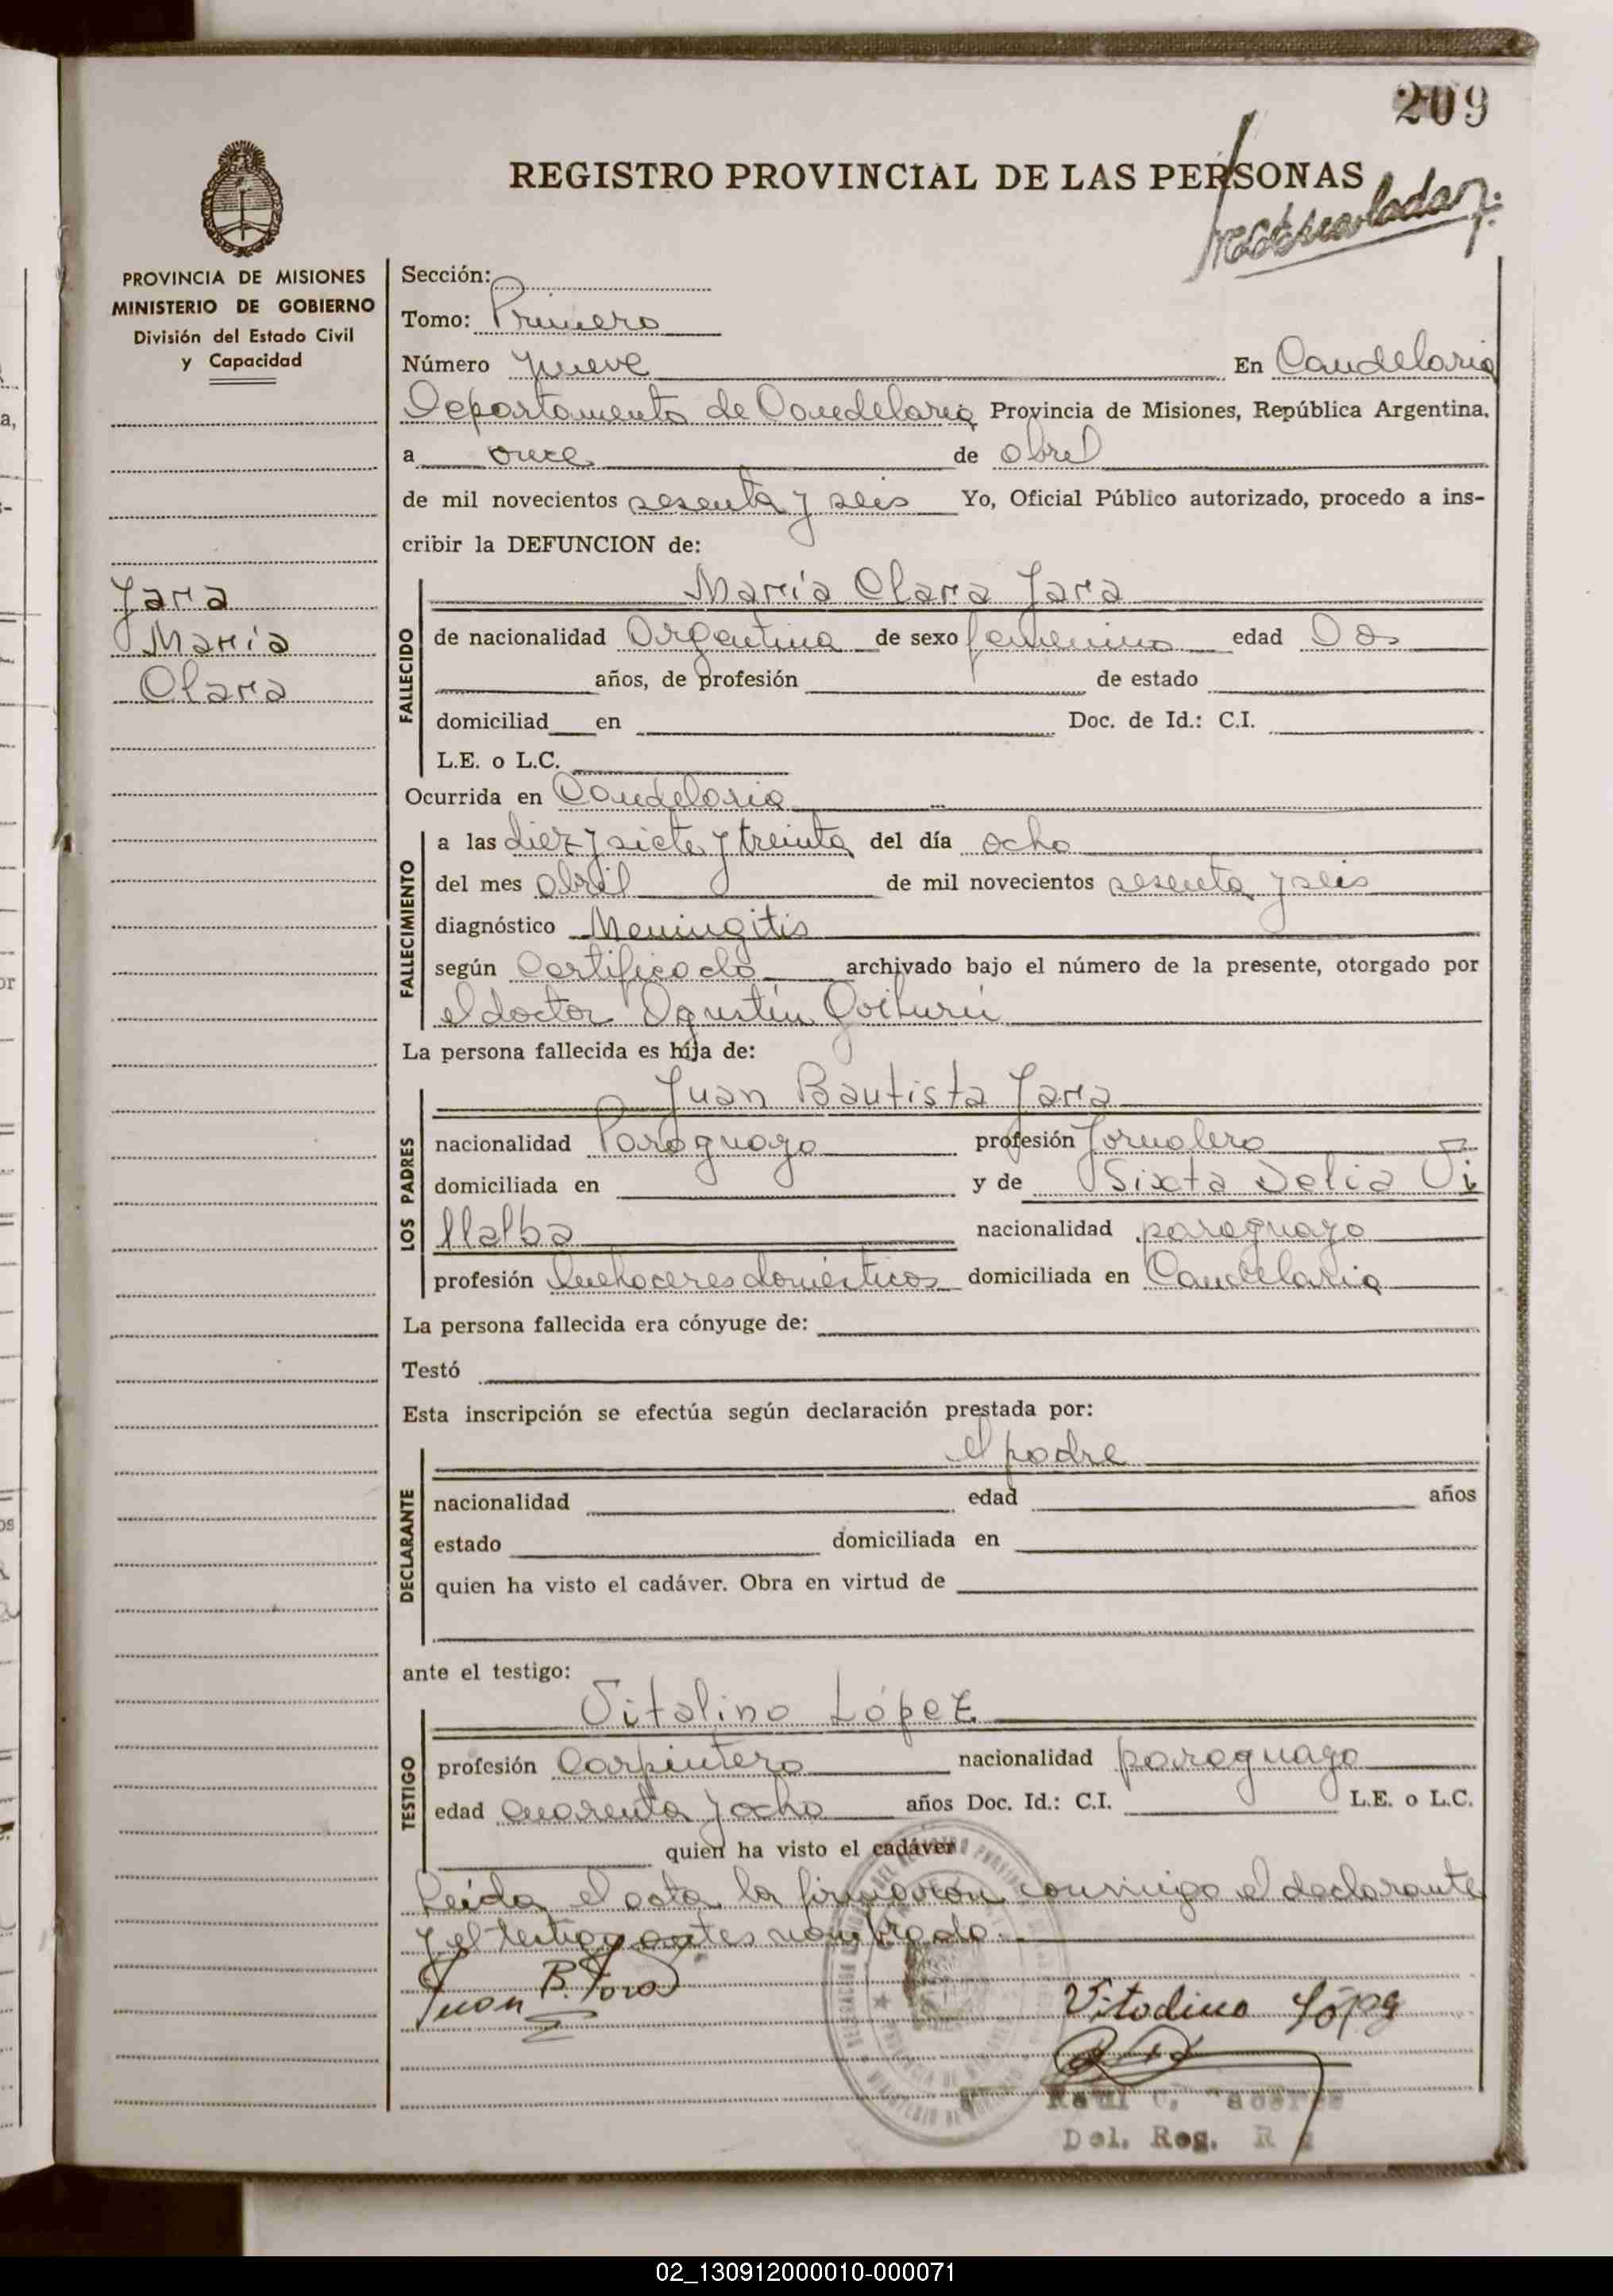 209
REGISTRO PROVINCIAL DE LAS PERSONAS
PROVINCIA DE MISIONES
MINISTERIO DE GOBIERNO
División del Estado Civil
y Capacidad
Sección:
Tomo: Primero
Número nueve En Candelaria
Departamento de Candelaria Provincia de Misiones, República Argentina,
a once de abril
de mil novecientos sesenta y seis Yo, Oficial Público autorizado, procedo a ins-
cribir la DEFUNCION de:
Jara
María
Clara
FALLECIDO
María Clara Jara
de nacionalidad Argentina de sexo femenino edad Dos
años, de profesión de estado
domiciliad en Doc. de Id.: C.I.
L.E. o L.C.
Ocurrida en Candelaria
FALLECIMIENTO
a las diez y siete y treinta del día ocho
del mes abril de mil novecientos sesenta y seis
diagnóstico Meningitis
según Certificado archivado bajo el número de la presente, otorgado por
el doctor Agustín Goiburú
La persona fallecida es hija de:
LOS PADRES
Juan Bautista Jara
nacionalidad Paraguayo profesión Jornalero
domiciliada en y de Sixta Delia Vi
llalba nacionalidad paraguayo
profesión Quehaceres domésticos domiciliada en Candelaria
La persona fallecida era cónyuge de:
Testó
Esta inscripción se efectúa según declaración prestada por:
DECLARANTE
el padre
nacionalidad edad años
estado domiciliada en
quien ha visto el cadáver. Obra en virtud de
ante el testigo:
TESTIGO
Vitalino López
profesión Carpintero nacionalidad paraguayo
edad cuarenta y ocho años Doc. Id.: C.I. L.E. o L.C.
quien ha visto el cadáver
Leída el acta la firmaron conmigo el declarante
y el testigo antes nombrado.
Juan B. Jara
Vitalino López
Raúl
Del. Reg.
02_130912000010-000071